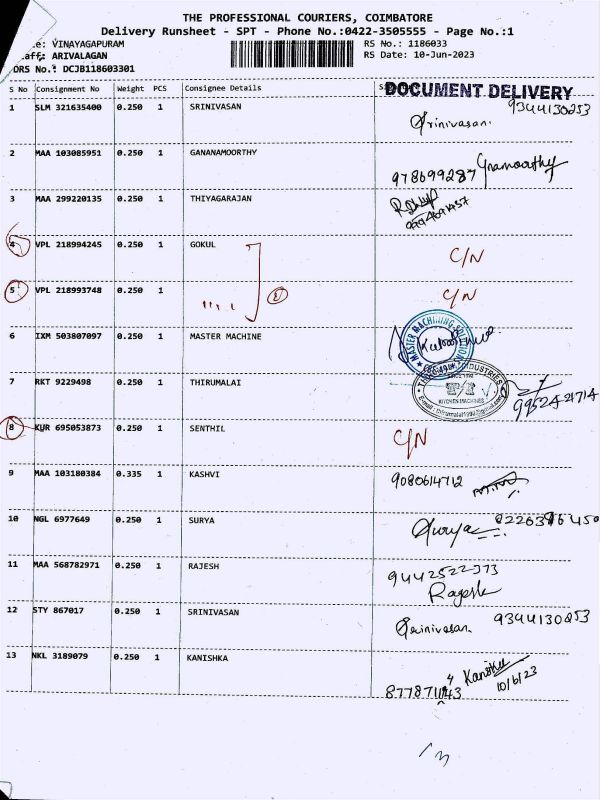 THE PROFESSIONAL COURIERS, COIMBATORE
Delivery Runsheet - SPT - Phone No.:0422-3505555 - Page No.:1
e: VINAYAGAPURAM RS No.: 1186033
aff: ARIVALAGAN RS Date: 10-Jun-2023
DRS No.: DCJB118603301
S No Consignment No Weight PCS Consignee Details S DOCUMENT DELIVERY
1 SLM 321635400 0.250 1 SRINIVASAN 9344130253
Srinivasan.
2 MAA 103085951 0.250 1 GANANAMOORTHY
978699287
3 MAA 299220135 0.250 1 THIYAGARAJAN
4 VPL 218994245 0.250 1 GOKUL C/N
5 VPL 218993748 0.250 1 C/N
6 IXM 503807097 0.250 1 MASTER MACHINE MASTER MACHINING SOLUTIONS
7 RKT 9229498 0.250 1 THIRUMALAI INDUSTRIES
KITCHEN MACHINES
8 KUR 695053873 0.250 1 SENTHIL C/N
9 MAA 103180384 0.335 1 KASHVI 9080614712
10 NGL 6977649 0.250 1 SURYA Surya
11 MAA 568782971 0.250 1 RAJESH 9442522373
Ragesh
12 STY 867017 0.250 1 SRINIVASAN Srinivasan. 9344130253
13 NKL 3189079 0.250 1 KANISHKA Kanishka
10/6/23